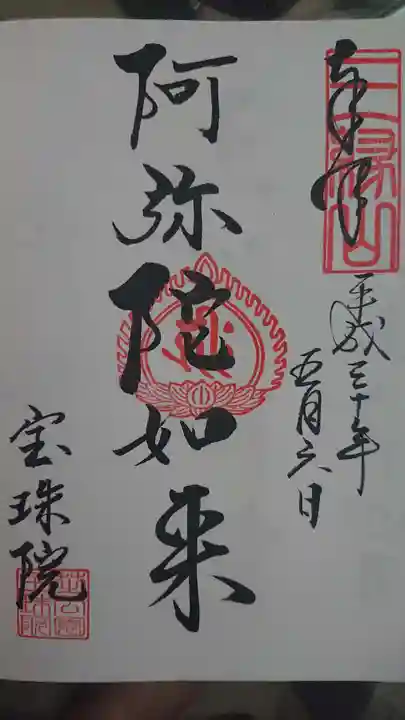 奉拝
三縁山
平成三十年
五月六日
阿弥陀如来
宝珠院